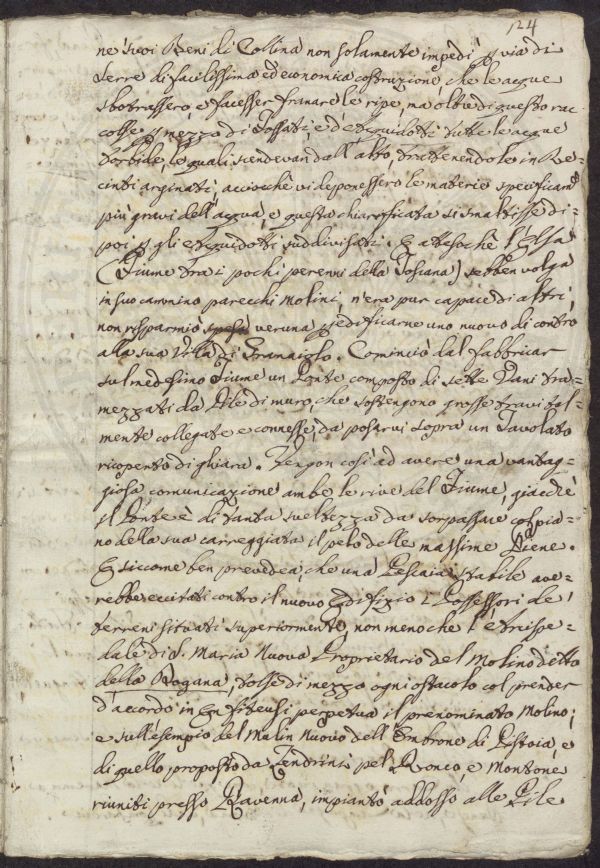 124
ne' suoi Beni di Collina non solamente impedì p via di
serre di facilissima ed economica costruzione, che le acque
sbotrassero, e facesser franare le ripe, ma oltre di questo rac
colse p mezzo di Fossati e d'Acquidotti tutte le acque
torbide, le quali scendevan dall'alto, trattenendole in Re=
cinti arginati, acciocchè vi deponessero le materie specificam.te
più gravi dell'acqua, e questa chiarificata si smaltisse di=
poi p gli Acquidotti suddivisati. E attesochè l'Elsa
(Fiume tra i pochi perenni della Toscana) sebben volga
in suo cammino parecchi Molini, n'era pur capace di altri,
non risparmiò spesa veruna p edificarne uno nuovo di contro
alla sua Villa di Granaiolo. Cominciò dal fabbricar
sul medesimo Fiume un Ponte composto di sette Vani tra=
mezzati da Pile di muro, che sostengono grosse travi tal=
mente collegate e connesse, da posarvi sopra un Tavolato
ricoperto di ghiara. Vengon così ad avere una vantag=
giosa comunicazione ambe le rive del Fiume, giacchè
il Ponte è di tanta sveltezza da sorpassare col pia=
no della sua carreggiata il pelo delle massime Piene.
E siccome ben prevedea, che una Pescaia stabile ave=
rebbe eccitati contro il nuovo Edifizio i Possessori de'
terreni situati superiormente, non meno che lo Spe=
dale di S. Maria Nuova Proprietario del Molino detto
della Dogana, tolse di mezzo ogni ostacolo col prender
d'accordo in Enfiteusi perpetua il prenominato Molino;
e sull'esempio del Mulin Nuovo dell'Ombrone di Pistoia, e
di quello proposto da Zendrini pel Ronco, e Montone
riuniti presso Ravenna, impiantò addosso alle Pile